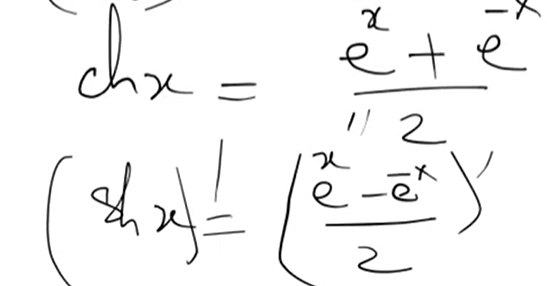 ch x = (e^x + e^-x) / 2
(sh x)' = ((e^x - e^-x) / 2)'